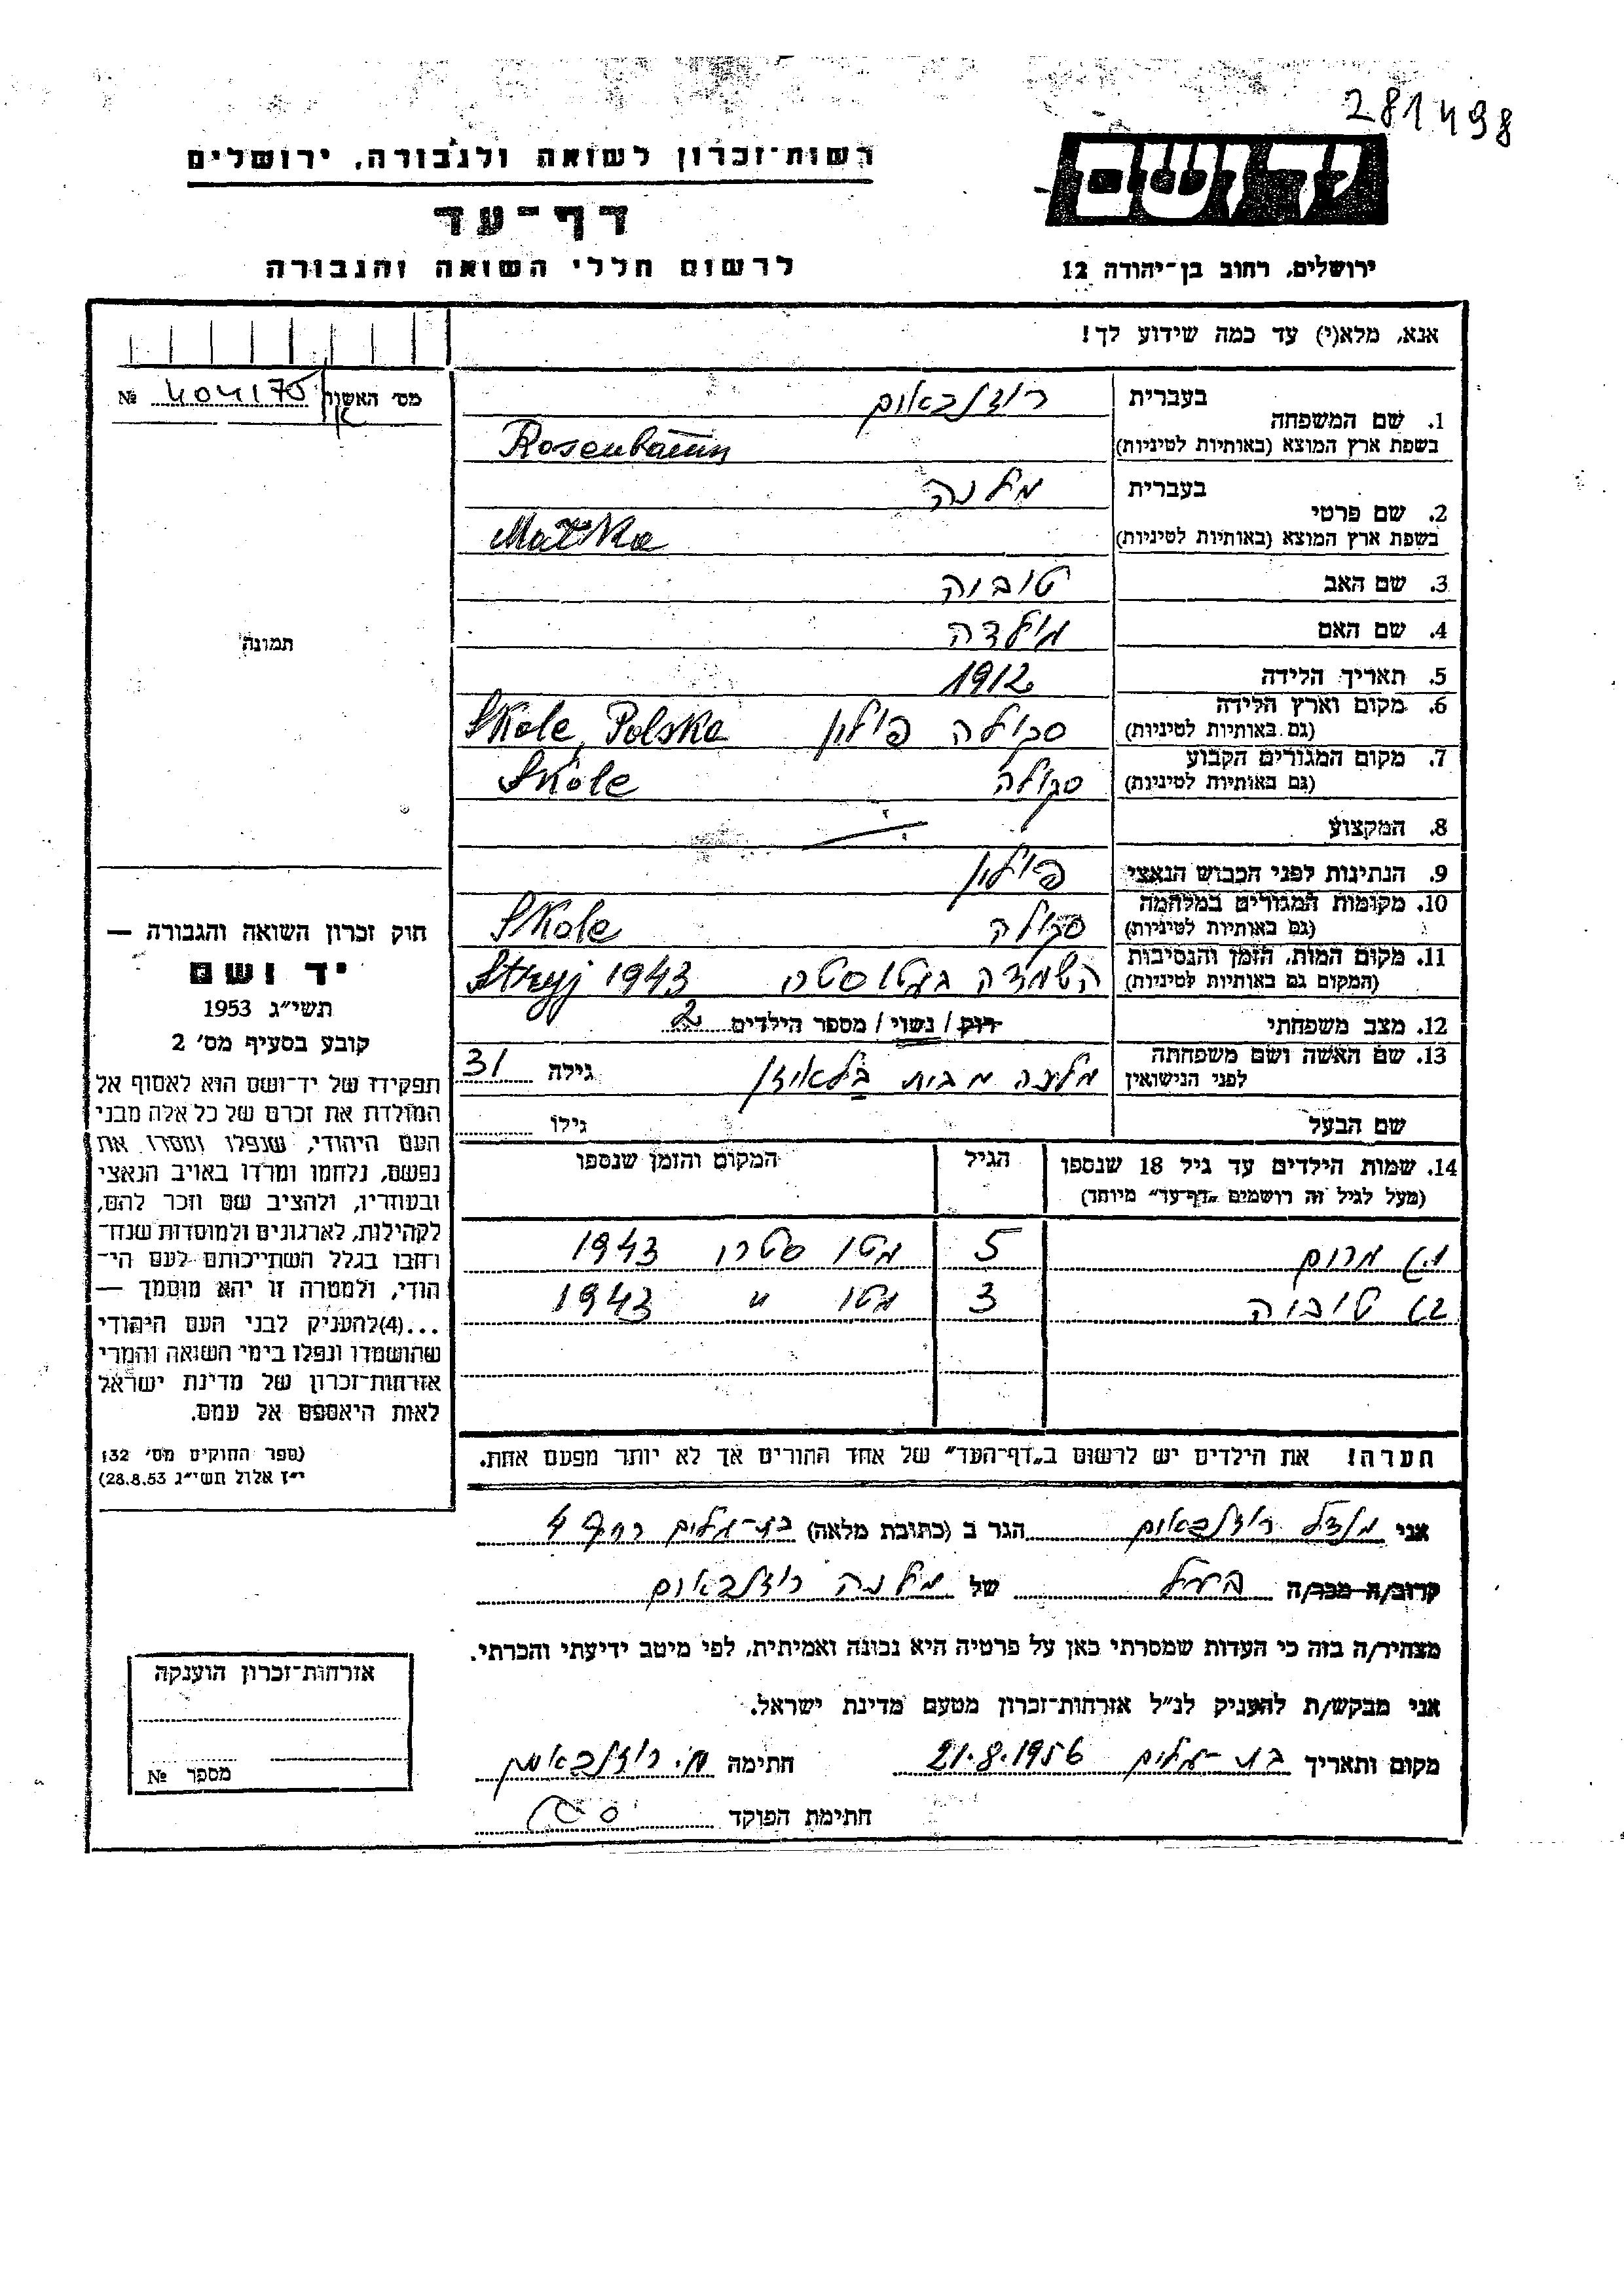 281498
רשות־זכרון לשואה ולגבורה, ירושלים
יד ושם
דף־עד
לרשום חללי השואה והגבורה
ירושלים, רחוב בן־יהודה 12
אנא, מלא(י) עד כמה שידוע לך!
מס׳ האשור 404175 №
1. שם המשפחה
בעברית רוזנבאום
בשפת ארץ המוצא (באותיות לטיניות) Rosenbaum
2. שם פרטי
בעברית מלכה
בשפת ארץ המוצא (באותיות לטיניות) Malka
3. שם האב טוביה
4. שם האם
5. תאריך הלידה 1912
6. מקום וארץ הלידה
(גם באותיות לטיניות) סקולה פולין Skole, Polska
7. מקום המגורים הקבוע
(גם באותיות לטיניות) סקולה Skole
8. המקצוע
9. הנתינות לפני הכבוש הנאצי פולין
10. מקומות המגורים במלחמה
(גם באותיות לטיניות) סקולה Skole
11. מקום המות, הזמן והנסיבות
(המקום גם באותיות לטיניות) השמדה בגטו Stryj 1943
12. מצב משפחתי רוק / נשוי / מספר הילדים 2
13. שם האשה ושם משפחתה
לפני הנישואין מלכה מבית גילה 31
שם הבעל גילו
14. שמות הילדים עד גיל 18 שנספו
(מעל לגיל זה רושמים „דף־עד״ מיוחד)
הגיל
המקום והזמן שנספו
1) 5 גטו סטרי 1943
2) טוביה 3 גטו ״ 1943
הערה! את הילדים יש לרשום ב„דף־העד״ של אחד ההורים אך לא יותר מפעם אחת.
אני מנדל רוזנבאום הגר ב (כתובת מלאה) בת־גלים 4
קרוב/ה מכר/ה בעל של מלכה רוזנבאום
מצהיר/ה בזה כי העדות שמסרתי כאן על פרטיה היא נכונה ואמיתית, לפי מיטב ידיעתי והכרתי.
אני מבקש/ת להעניק לנ״ל אזרחות־זכרון מטעם מדינת ישראל.
מקום ותאריך בת־גלים 21.8.1956 חתימה מ. רוזנבאום
חתימת הפוקד
תמונה
חוק זכרון השואה והגבורה —
יד ושם
תשי״ג 1953
קובע בסעיף מס׳ 2
תפקידו של יד־ושם הוא לאסוף אל
המולדת את זכרם של כל אלה מבני
העם היהודי, שנפלו ומסרו את
נפשם, נלחמו ומרדו באויב הנאצי
ובעוזריו, ולהציב שם וזכר להם,
לקהילות, לארגונים ולמוסדות שנח־
רבו בגלל השתייכותם לעם הי־
הודי, ולמטרה זו יהא מוסמך —
...(4)להעניק לבני העם היהודי
שהושמדו ונפלו בימי השואה והמרי
אזרחות־זכרון של מדינת ישראל
לאות היאספם אל עמם.
(ספר החוקים מס׳ 132
י״ז אלול תשי״ג 28.8.53)
אזרחות־זכרון הוענקה
מספר №